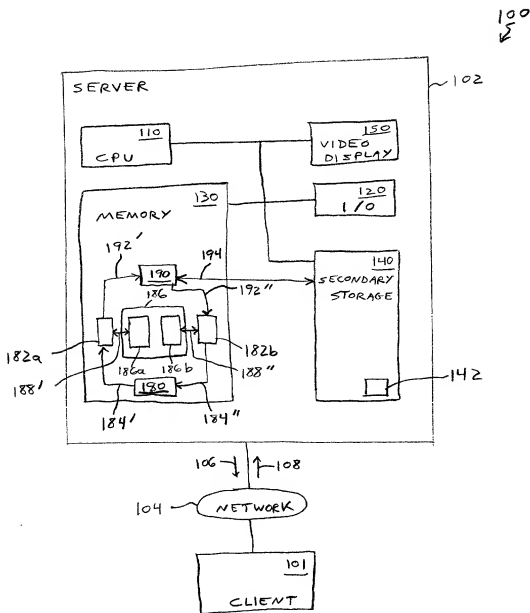 100
SERVER
102
110
CPU
150
VIDEO
DISPLAY
MEMORY
130
120
I/O
192'
190
194
140
SECONDARY
STORAGE
186
192"
182a
186a
186b
182b
188'
188"
180
184'
184"
142
106
108
104
NETWORK
101
CLIENT